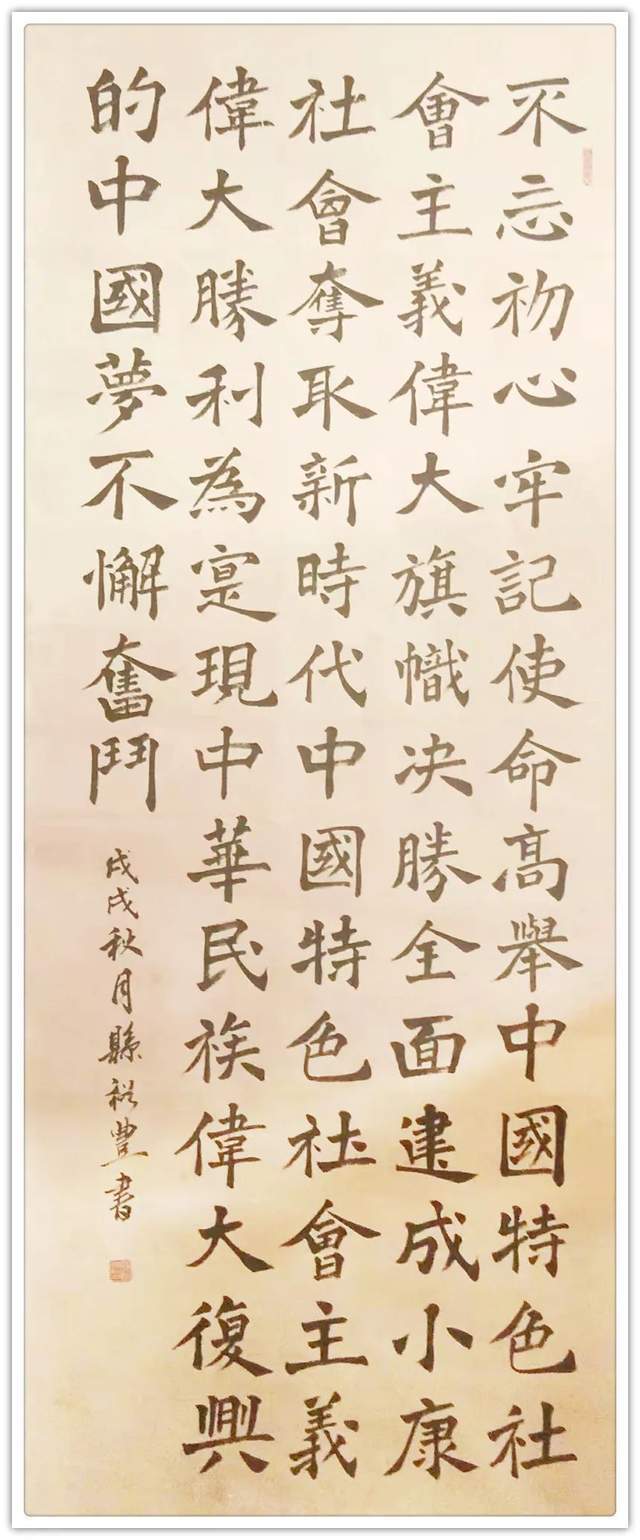 不忘初心牢記使命高舉中國特色社
會主義偉大旗幟决勝全面建成小康
社會奪取新時代中國特色社會主義
偉大勝利為寔現中華民族偉大復興
的中國夢不懈奮鬥
戊戌秋月縣裕豐書